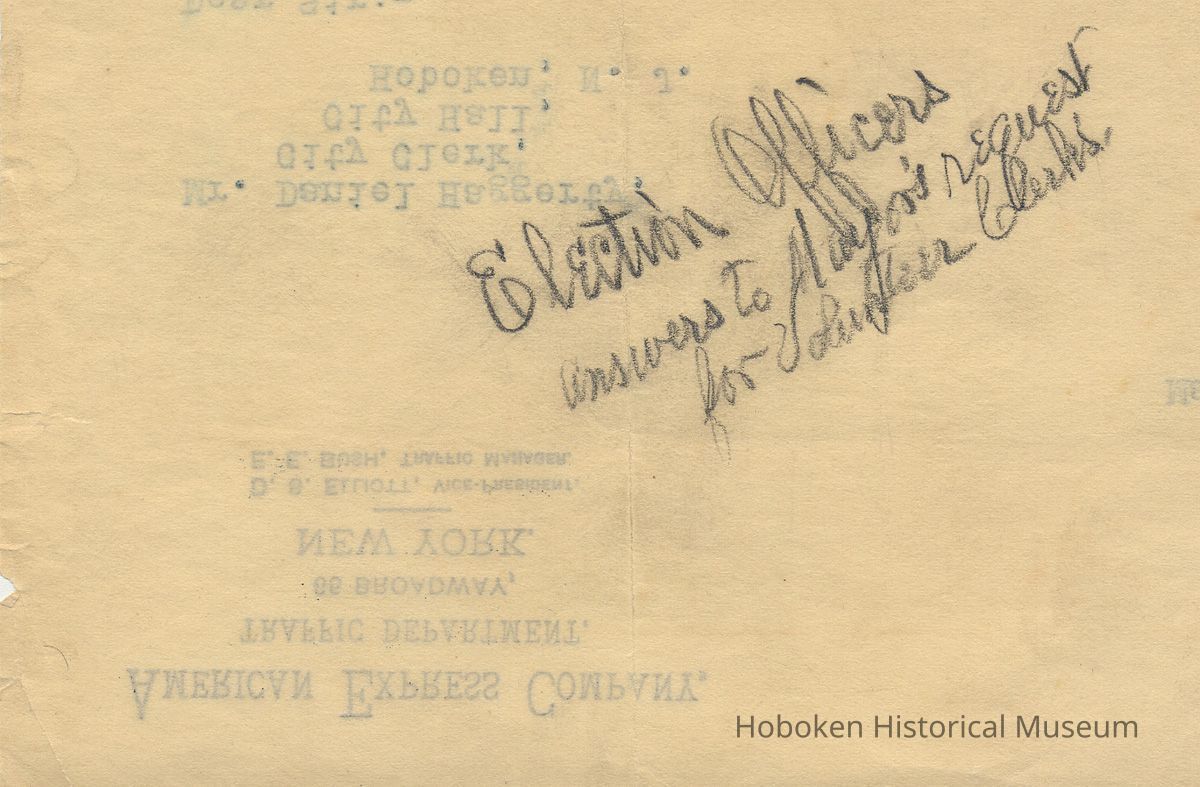 Election Officers
answers to Mayor's request
for Volunteer Clerks.
Dear Sir:
Hoboken, N. J.
City Hall,
City Clerk,
Mr. Daniel Haggerty,
E. E. BUSH, TRAFFIC MANAGER.
D. S. ELLIOTT, VICE-PRESIDENT.
NEW YORK.
65 BROADWAY,
TRAFFIC DEPARTMENT.
AMERICAN EXPRESS COMPANY,
Hoboken Historical Museum